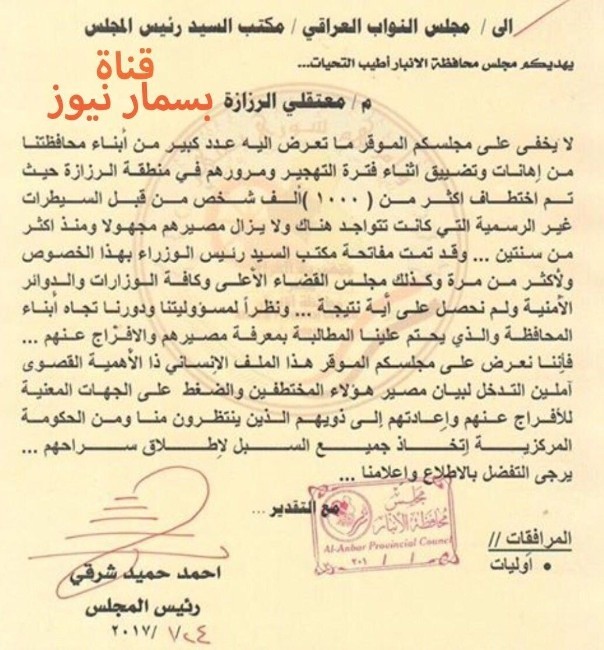 الى / مجلس النواب العراقي / مكتب السيد رئيس المجلس
يهديكم مجلس محافظة الانبار أطيب التحيات...
قناة
بسمار نيوز
م / معتقلي الرزازة
لا يخفى على مجلسكم الموقر ما تعرض اليه عدد كبير من أبناء محافظتنا
من إهانات وتضييق اثناء فترة التهجير ومرورهم في منطقة الرزازة حيث
تم اختطاف اكثر من ( ١٠٠٠ )ألف شخص من قبل السيطرات
غير الرسمية التي كانت تتواجد هناك ولا يزال مصيرهم مجهولا ومنذ اكثر
من سنتين ... وقد تمت مفاتحة مكتب السيد رئيس الوزراء بهذا الخصوص
ولأكثر من مرة وكذلك مجلس القضاء الأعلى وكافة الوزارات والدوائر
الأمنية ولم نحصل على أية نتيجة ... ونظراً لمسؤوليتنا ودورنا تجاه أبناء
المحافظة والذي يحتم علينا المطالبة بمعرفة مصيرهم والافراج عنهم ...
فأننا نعرض على مجلسكم الموقر هذا الملف الإنساني ذا الأهمية القصوى
آملين التدخل لبيان مصير هؤلاء المختطفين والضغط على الجهات المعنية
للأفراج عنهم وإعادتهم إلى ذويهم الذين ينتظرون منا ومن الحكومة
المركزية إتخاذ جميع السبل لإطلاق سراحهم ...
يرجى التفضل بالاطلاع واعلامنا ...
مع التقدير ...
مجلس
محافظة الأنبار
Al-Anbar Provincial Council
٢٠١ / /
المرافقات //
• أوليات
احمد حميد شرقي
رئيس المجلس
٢٠١٧/٧/٢٤